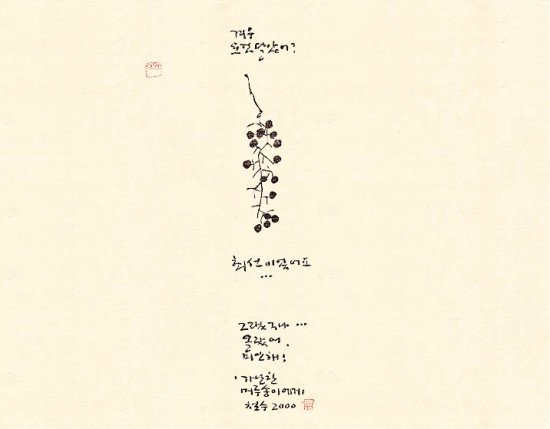 겨우
요것 달았어?
최선이었어요
...
그랬구나 ...
몰랐어.
미안해!
· 가난한
머루송이에게
철수 2000